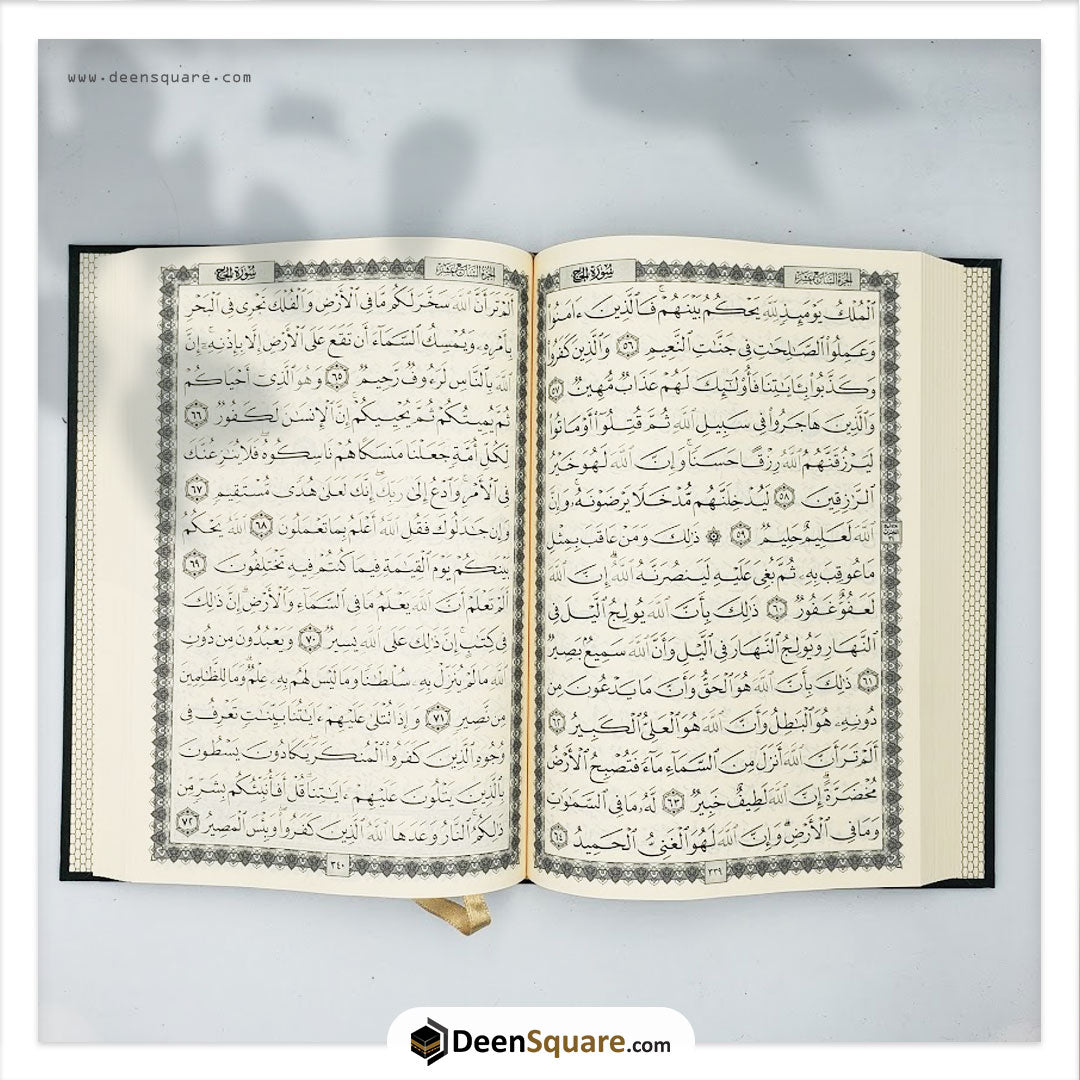 www.deensquare.com
سُورَةُ الحَجّ
الجُزْءُ السَّابِعَ عَشَرَ
ٱلْمُلْكُ يَوْمَئِذٍ لِّلَّهِ يَحْكُمُ بَيْنَهُمْ ۚ فَٱلَّذِينَ ءَامَنُوا۟
وَعَمِلُوا۟ ٱلصَّـٰلِحَـٰتِ فِى جَنَّـٰتِ ٱلنَّعِيمِ ٥٦ وَٱلَّذِينَ كَفَرُوا۟
وَكَذَّبُوا۟ بِـَٔايَـٰتِنَا فَأُو۟لَـٰٓئِكَ لَهُمْ عَذَابٌ مُّهِينٌ ٥٧
وَٱلَّذِينَ هَاجَرُوا۟ فِى سَبِيلِ ٱللَّهِ ثُمَّ قُتِلُوٓا۟ أَوْ مَاتُوا۟
لَيَرْزُقَنَّهُمُ ٱللَّهُ رِزْقًا حَسَنًا ۚ وَإِنَّ ٱللَّهَ لَهُوَ خَيْرُ
ٱلرَّٰزِقِينَ ٥٨ لَيُدْخِلَنَّهُم مُّدْخَلًا يَرْضَوْنَهُۥ ۗ وَإِنَّ
ٱللَّهَ لَعَلِيمٌ حَلِيمٌ ٥٩ ۞ ذَٰلِكَ وَمَنْ عَاقَبَ بِمِثْلِ
مَا عُوقِبَ بِهِۦ ثُمَّ بُغِىَ عَلَيْهِ لَيَنصُرَنَّهُ ٱللَّهُ ۗ إِنَّ ٱللَّهَ
لَعَفُوٌّ غَفُورٌ ٦٠ ذَٰلِكَ بِأَنَّ ٱللَّهَ يُولِجُ ٱلَّيْلَ فِى
ٱلنَّهَارِ وَيُولِجُ ٱلنَّهَارَ فِى ٱلَّيْلِ وَأَنَّ ٱللَّهَ سَمِيعٌۢ بَصِيرٌ
٦١ ذَٰلِكَ بِأَنَّ ٱللَّهَ هُوَ ٱلْحَقُّ وَأَنَّ مَا يَدْعُونَ مِن
دُونِهِۦ هُوَ ٱلْبَـٰطِلُ وَأَنَّ ٱللَّهَ هُوَ ٱلْعَلِىُّ ٱلْكَبِيرُ ٦٢
أَلَمْ تَرَ أَنَّ ٱللَّهَ أَنزَلَ مِنَ ٱلسَّمَآءِ مَآءً فَتُصْبِحُ ٱلْأَرْضُ
مُخْضَرَّةً ۗ إِنَّ ٱللَّهَ لَطِيفٌ خَبِيرٌ ٦٣ لَّهُۥ مَا فِى ٱلسَّمَـٰوَٰتِ
وَمَا فِى ٱلْأَرْضِ ۗ وَإِنَّ ٱللَّهَ لَهُوَ ٱلْغَنِىُّ ٱلْحَمِيدُ ٦٤
٣٣٩
سُورَةُ الحَجّ
الجُزْءُ السَّابِعَ عَشَرَ
أَلَمْ تَرَ أَنَّ ٱللَّهَ سَخَّرَ لَكُم مَّا فِى ٱلْأَرْضِ وَٱلْفُلْكَ تَجْرِى فِى ٱلْبَحْرِ
بِأَمْرِهِۦ وَيُمْسِكُ ٱلسَّمَآءَ أَن تَقَعَ عَلَى ٱلْأَرْضِ إِلَّا بِإِذْنِهِۦٓ ۗ إِنَّ
ٱللَّهَ بِٱلنَّاسِ لَرَءُوفٌ رَّحِيمٌ ٦٥ وَهُوَ ٱلَّذِىٓ أَحْيَاكُمْ
ثُمَّ يُمِيتُكُمْ ثُمَّ يُحْيِيكُمْ ۗ إِنَّ ٱلْإِنسَـٰنَ لَكَفُورٌ ٦٦
لِّكُلِّ أُمَّةٍ جَعَلْنَا مَنسَكًا هُمْ نَاسِكُوهُ ۖ فَلَا يُنَـٰزِعُنَّكَ
فِى ٱلْأَمْرِ ۚ وَٱدْعُ إِلَىٰ رَبِّكَ ۖ إِنَّكَ لَعَلَىٰ هُدًى مُّسْتَقِيمٍ ٦٧
وَإِن جَـٰدَلُوكَ فَقُلِ ٱللَّهُ أَعْلَمُ بِمَا تَعْمَلُونَ ٦٨ ٱللَّهُ يَحْكُمُ
بَيْنَكُمْ يَوْمَ ٱلْقِيَـٰمَةِ فِيمَا كُنتُمْ فِيهِ تَخْتَلِفُونَ ٦٩
أَلَمْ تَعْلَمْ أَنَّ ٱللَّهَ يَعْلَمُ مَا فِى ٱلسَّمَآءِ وَٱلْأَرْضِ ۗ إِنَّ ذَٰلِكَ
فِى كِتَـٰبٍ ۚ إِنَّ ذَٰلِكَ عَلَى ٱللَّهِ يَسِيرٌ ٧٠ وَيَعْبُدُونَ مِن دُونِ
ٱللَّهِ مَا لَمْ يُنَزِّلْ بِهِۦ سُلْطَـٰنًا وَمَا لَيْسَ لَهُم بِهِۦ عِلْمٌ ۗ وَمَا لِلظَّـٰلِمِينَ
مِن نَّصِيرٍ ٧١ وَإِذَا تُتْلَىٰ عَلَيْهِمْ ءَايَـٰتُنَا بَيِّنَـٰتٍ تَعْرِفُ فِى
وُجُوهِ ٱلَّذِينَ كَفَرُوا۟ ٱلْمُنكَرَ ۖ يَكَادُونَ يَسْطُونَ
بِٱلَّذِينَ يَتْلُونَ عَلَيْهِمْ ءَايَـٰتِنَا ۗ قُلْ أَفَأُنَبِّئُكُم بِشَرٍّ مِّن
ذَٰلِكُمُ ۗ ٱلنَّارُ وَعَدَهَا ٱللَّهُ ٱلَّذِينَ كَفَرُوا۟ ۖ وَبِئْسَ ٱلْمَصِيرُ ٧٢
٣٤٠
DeenSquare.com